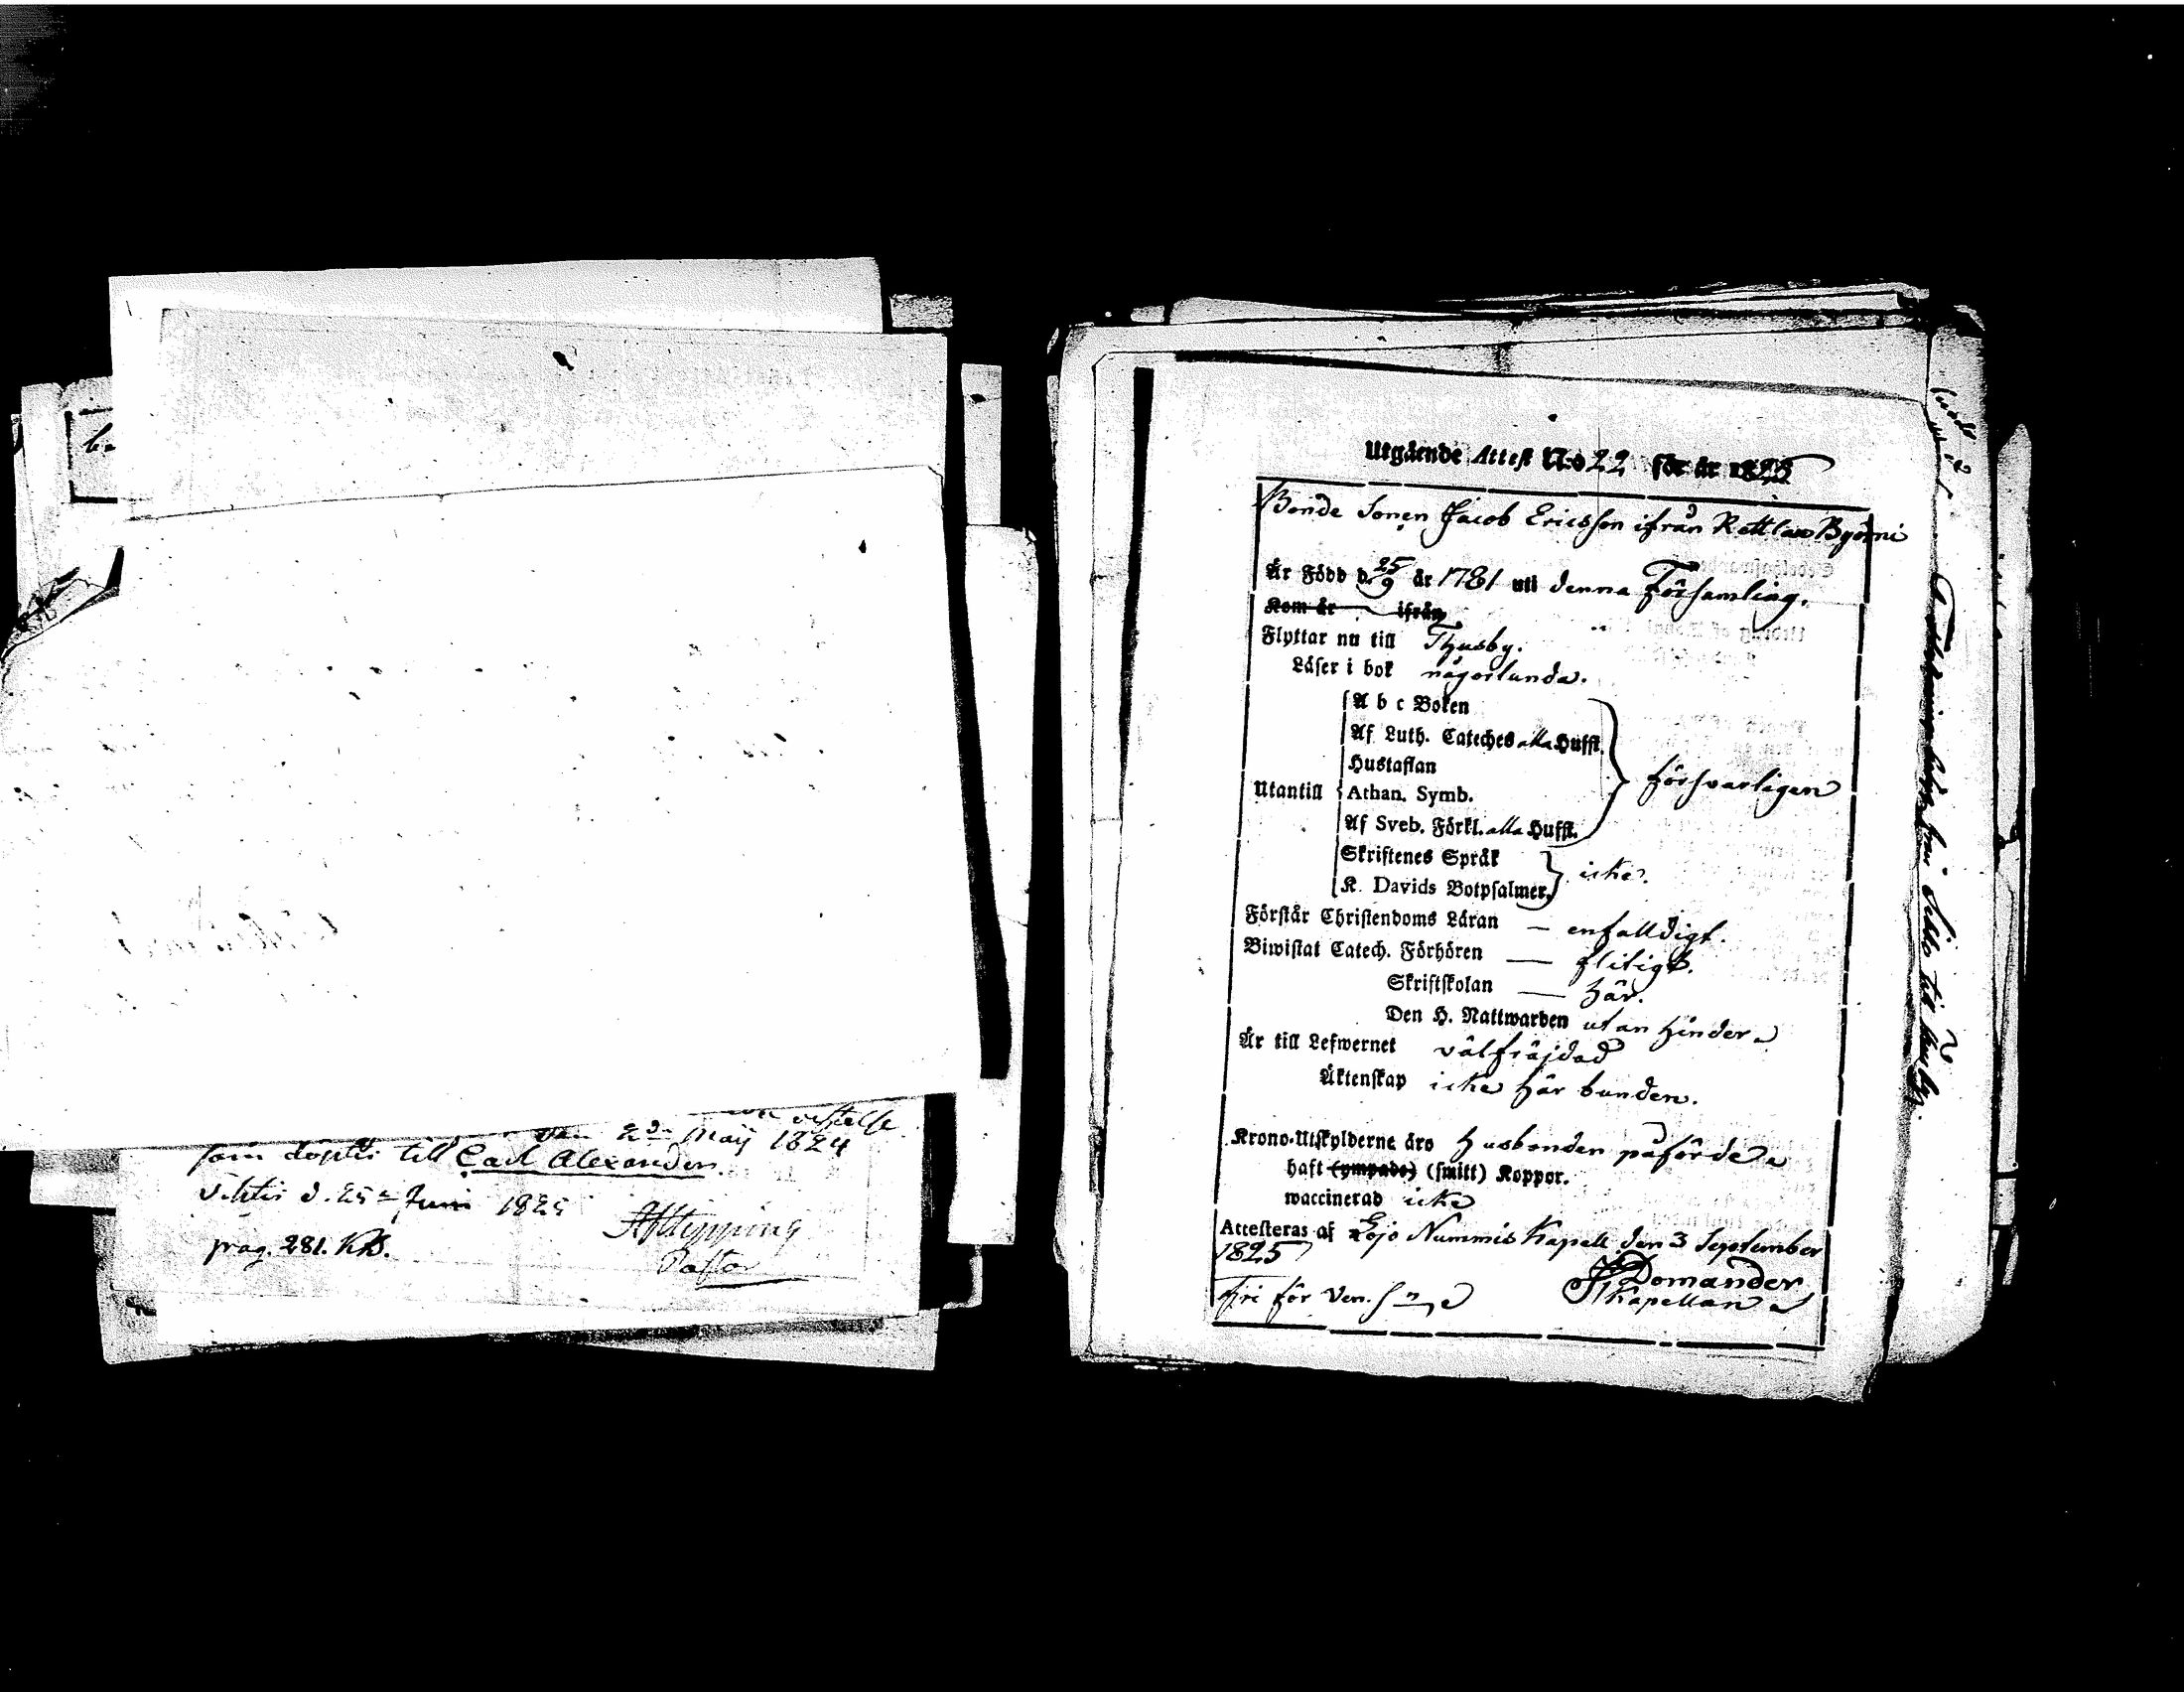 den 2dn Maij 1824
som döptes till Carl Alexander.
d. 25 Juni 1825
pag. 281. KB.
Pastor
Utgående Attest No 22 för år 1825
Bonde Sonen Jacob Ericsson ifrån Rettlax Byörni
Är Född d. 25/9 år 1781 uti denna Församling.
Kom år ifrån
Flyttar nu till Thusby.
Läser i bok någorlunda.
A b c Boken
Af Luth. Cateches alla Hufst.
Hustaflan
Utantill Athan. Symb. försvarligen
Af Sveb. Förkl. alla Hufst.
Skriftenes Språk
K. Davids Botpsalmer. icke.
Förstår Christendoms Läran — enfalldigt.
Biwistat Catech. Förhören — flitigt.
Skriftskolan — här.
Den H. Nattwarden utan hinder
Är till Lefwernet välfräjdad
Äktenskap icke här bunden.
Krono-Utskylderne äro husbonden påförde
haft (ympade) (smitt) Koppor.
waccinerad icke
Attesteras af Lojo Nummis Kapell den 3 September
1825
Domander
Fri för Ven. Sn
Kapellan